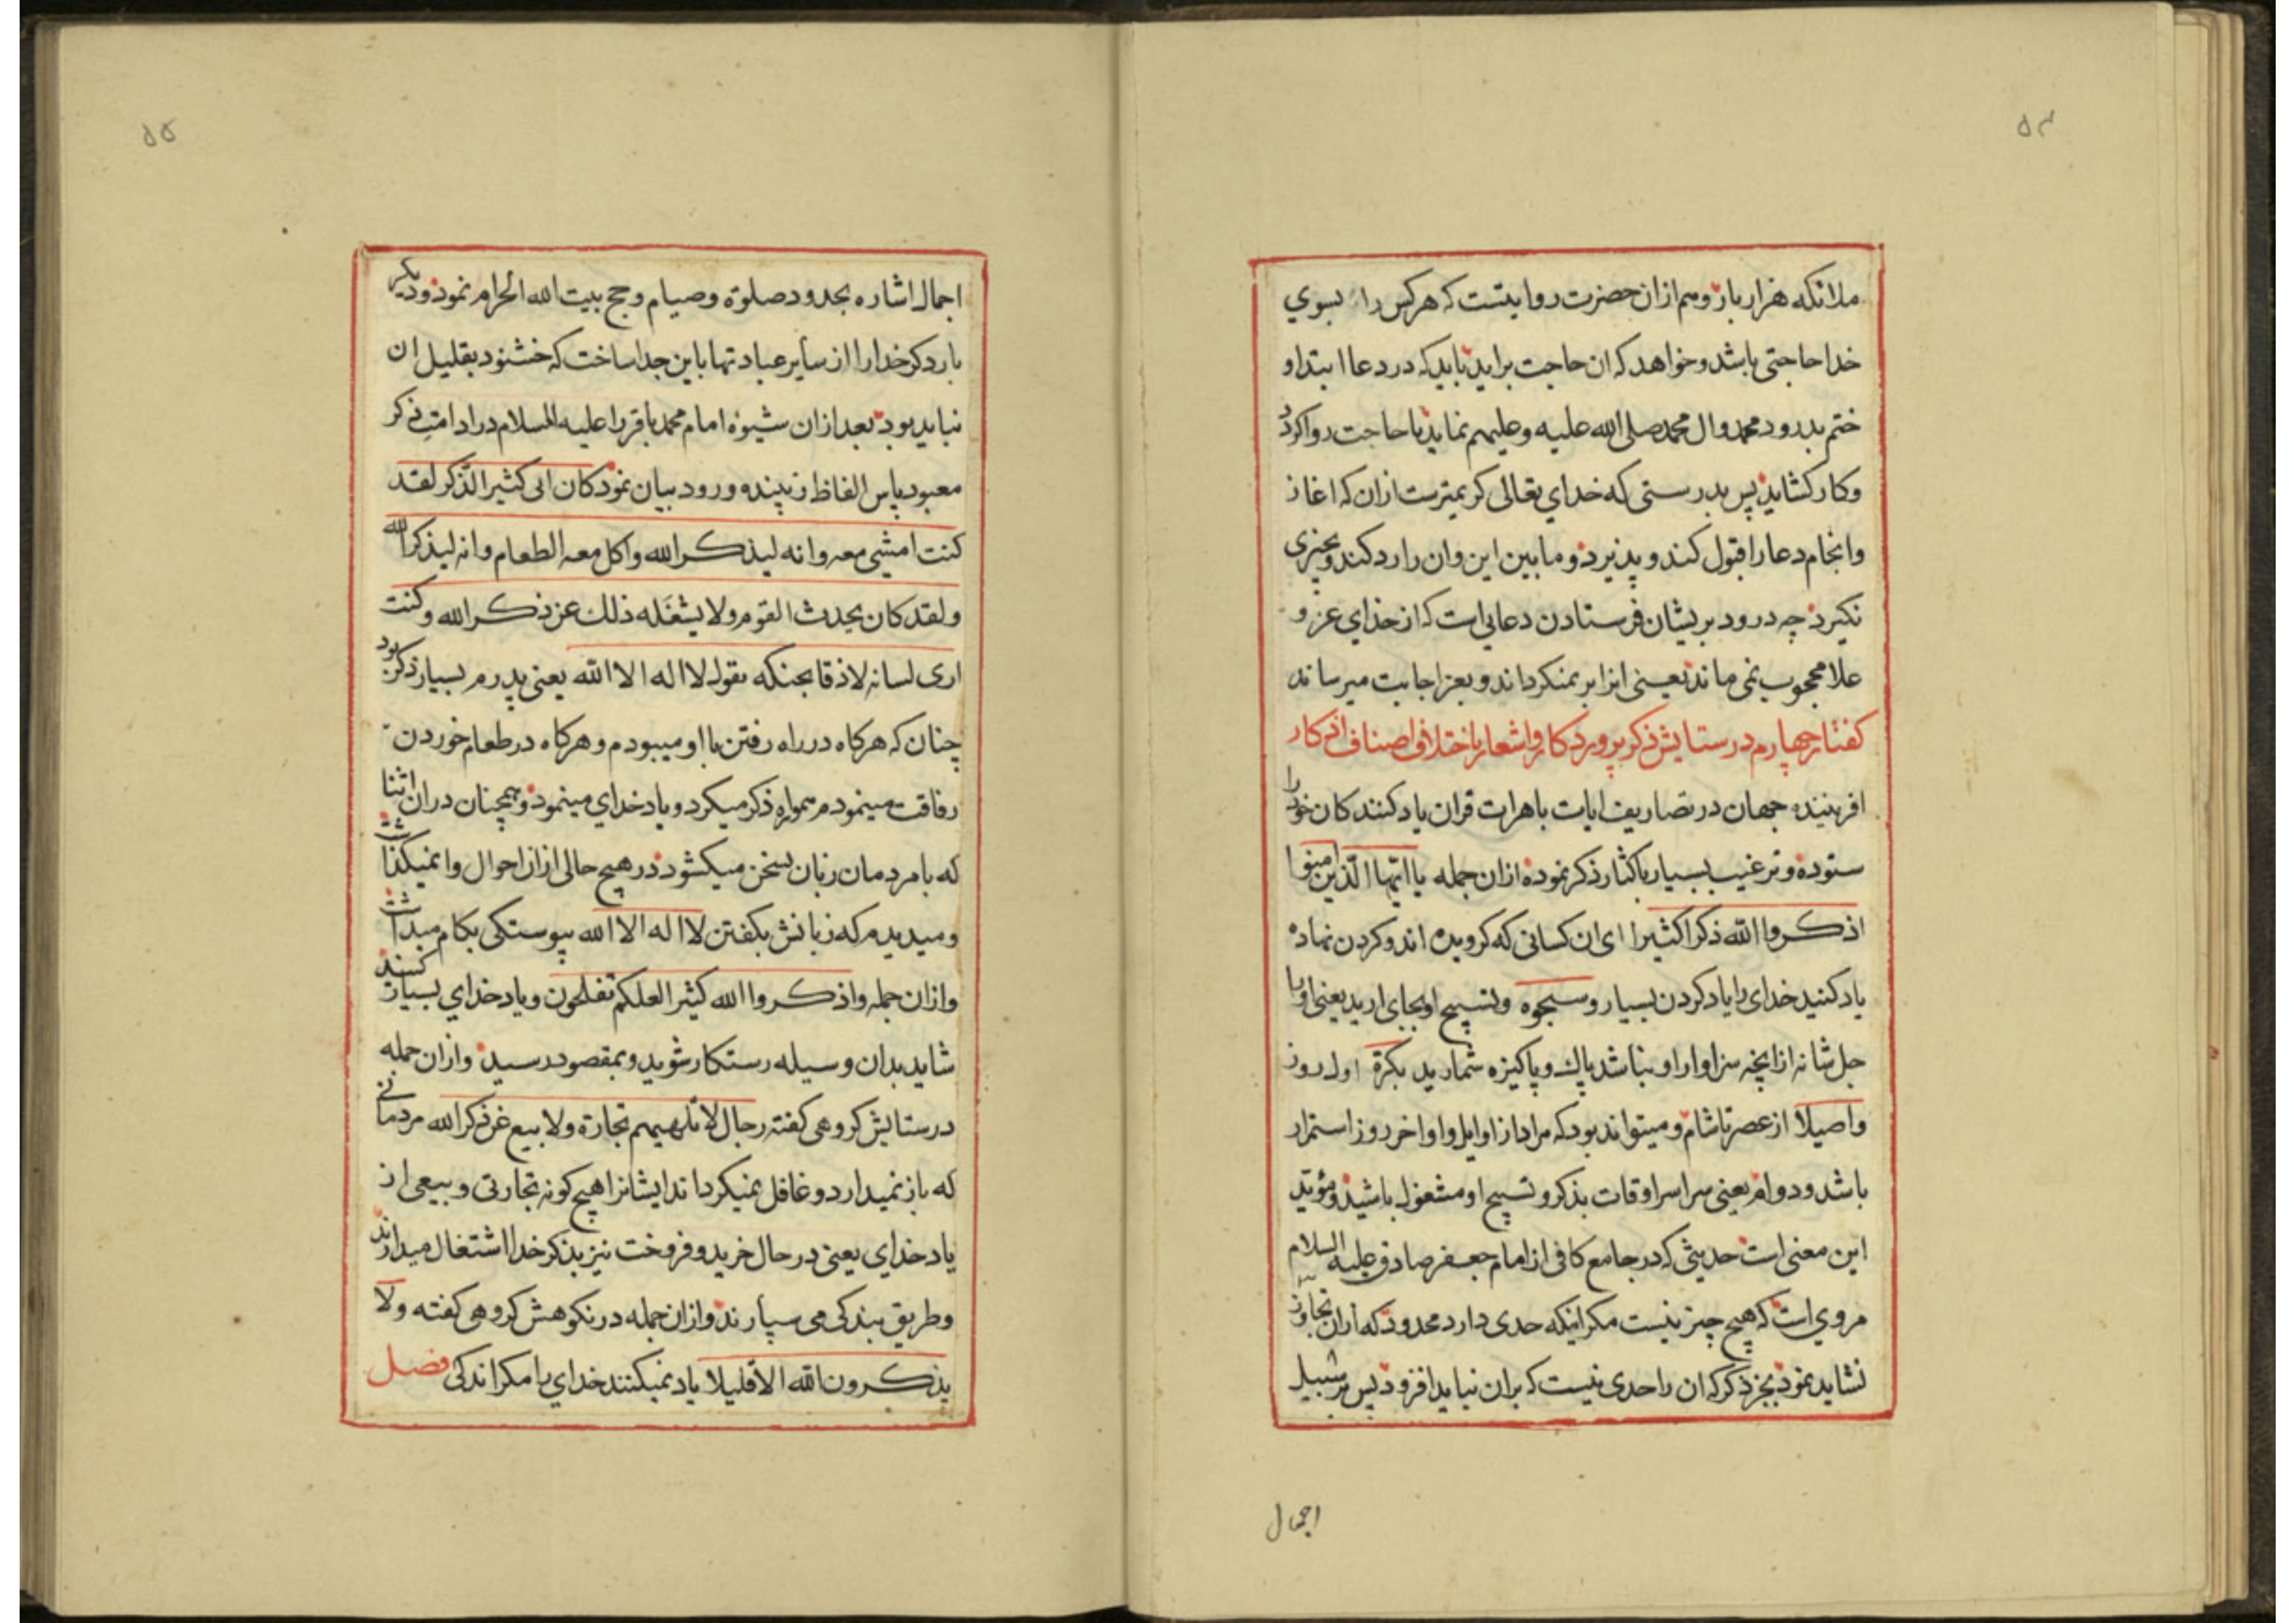 ۵۴
ملائکه هزار بار و هم ازان حضرت روایتست که هرکس را بسوی
خدا حاجتی باشد و خواهد که ان حاجت براید باید که در دعا ابتدا و
ختم بدرود محمد وال محمد صلی الله علیه وعلیهم نماید تا حاجت روا کردد
وکار کشاید پس بدرستی که خدای تعالی کریمترست ازان که اغاز
وانجام دعا را قبول کند و پذیرد و ما بین این وان را رد کند و بچیزی
نکیرد چه درود بریشان فرستادن دعایی است که از خدای عز و
علا محجوب نمی ماند یعنی انرا بر نمیکرداند و بعز اجابت میرساند
کفتار چهارم در ستایش ذکر پروردکار و اشعار باختلاف اصناف اذکار
افریننده جهان در تصاریف ایات باهرات قران یاد کنندکان خود را
ستوده و ترغیب بسیار باکثار ذکر نموده ازان جمله یا ایها الّذین امنوا
اذکروا الله ذکرا کثیرا ای ان کسانی که کرویده اند و کردن نهاده
یاد کنید خدای را یاد کردن بسیار و سبحوه و تسبیح او بجای ارید یعنی او را
جل شانه از انچه سزاوار او نباشد پاك و پاکیزه شمارید بکرة اول روز
واصیلا از عصر تا شام و میتواند بود که مراد از اوایل و اواخر روز استمرار
باشد و دوام یعنی سراسر اوقات بذکر و تسبیح او مشغول باشید و مؤید
این معنی است حدیثی که در جامع کافی از امام جعفر صادق علیه السلام
مروی است که هیچ چیز نیست مکر اینکه حدی دارد محدود که ازان تجاوز
نشاید نمود بجز ذکر که ان را حدی نیست که بران نباید افزود پس بر سبیل
اجمال
۵۵
اجمال اشاره بحدود صلوة و صیام و حج بیت الله الحرام نمود و دیکر
بار ذکر خدا را از سایر عبادتها باین جدا ساخت که خشنود بقلیل ان
نباید بود بعد ازان شیوهٔ امام محمد باقر را علیه السلام در ادامت ذکر
معبود باین الفاظ زیبنده ورود بیان نمود کان ابی کثیر الذّکر لقد
کنت امشی معه وانه لیذکر الله واکل معه الطعام وانه لیذکر الله
ولقد کان یحدث القوم ولا یشغله ذلك عن ذکر الله وکنت
اری لسانه لازقا بحنکه یقول لا اله الا الله یعنی پدرم بسیار ذکر بود
چنان که هرکاه در راه رفتن با او میبودم و هرکاه در طعام خوردن
رفاقت مینمودم همواره ذکر میکرد و یاد خدای مینمود و همچنان دران اثنا
که با مردمان زبان بسخن میکشود در هیچ حالی ازان احوال وا نمیکذاشت
ومیدیدم که زبانش بکفتن لا اله الا الله پیوستکی بکام میداشت
وازان جمله واذکروا الله کثیرا لعلکم تفلحون و یاد خدای بسیار کنید
شاید بدان وسیله رستکار شوید و بمقصود رسید وازان جمله
در ستایش کروهی کفته رجال لا تلهیهم تجارة ولا بیع عن ذکر الله مردمانی
که باز نمیدارد و غافل نمیکرداند ایشانرا هیچ کونه تجارتی و بیعی از
یاد خدای یعنی در حال خرید و فروخت نیز بذکر خدا اشتغال میدارند
وطریق بندکی می سپارند وازان جمله در نکوهش کروهی کفته ولا
یذکرون الله الا قلیلا یاد نمیکنند خدای را مکر اندکی فصل